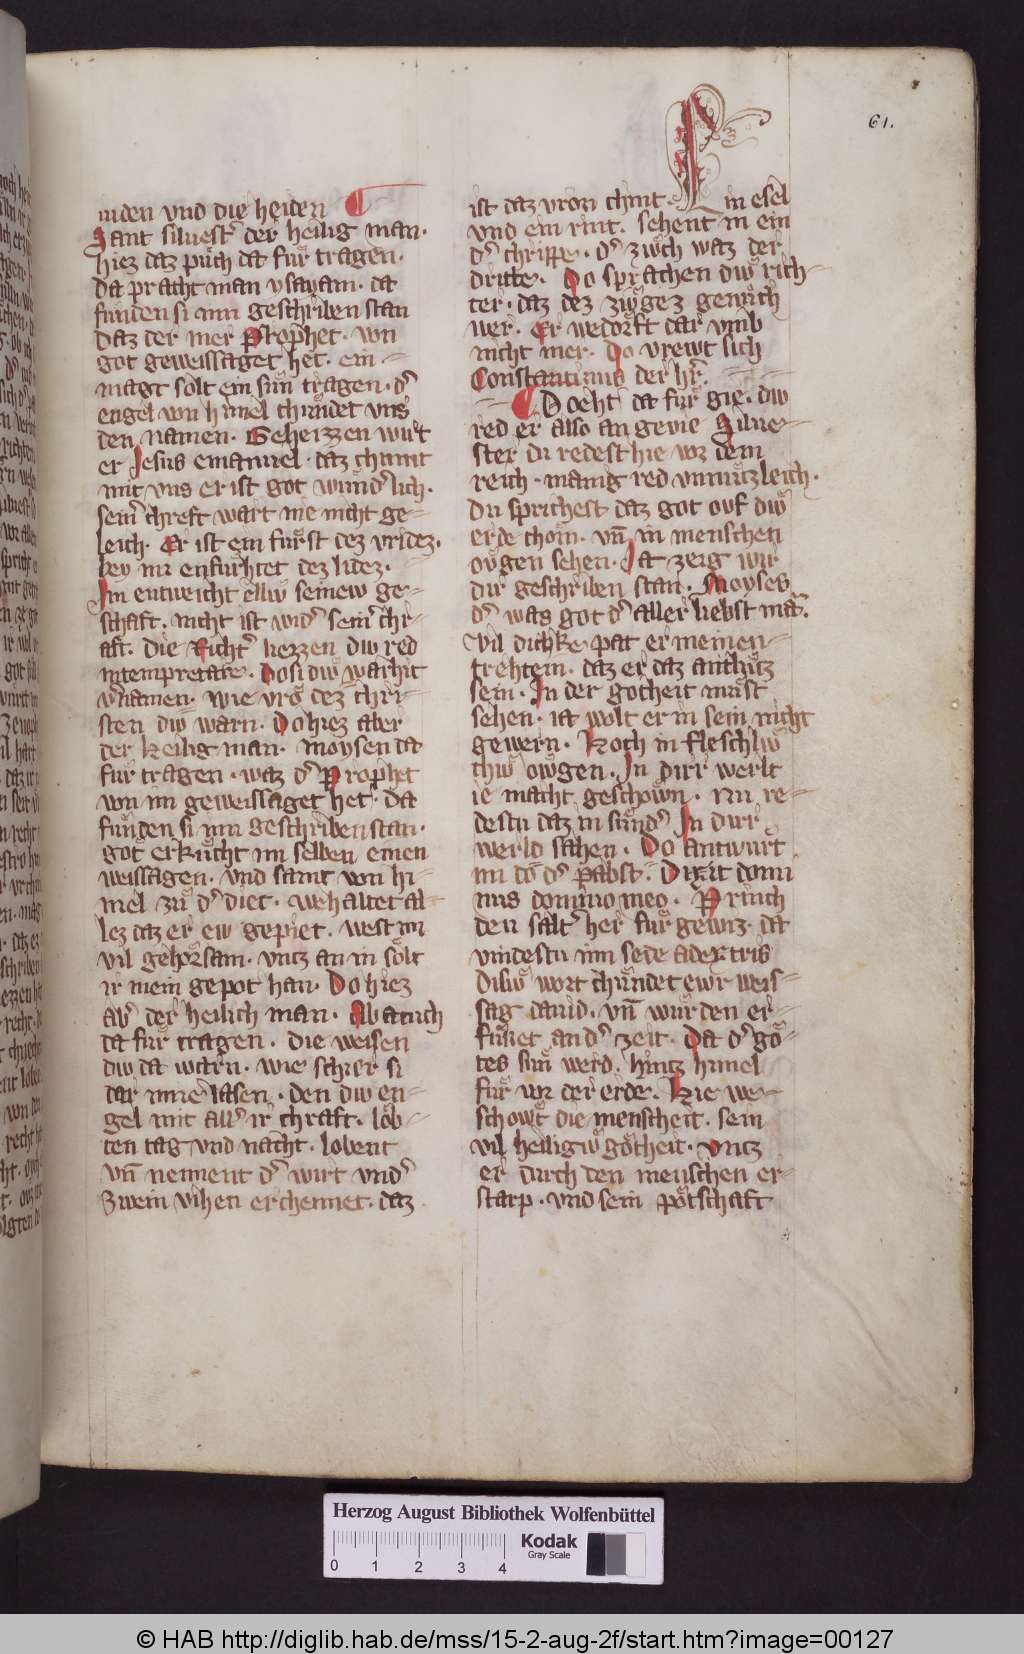 61.
iuden vnd die heiden
Sant siluestˀ der heilig man.
hiez daz půch da fuͤr tragen.
da pracht man ysayam. da
funden si inn geschriben stan
Daz der mer Prophet. von
got geweissaget het. ein
magt solt ein sun tragen. dˀ
engel von himel chuͤndet vns
den namen. Geheizzen wirt
er Jesus emanuel. daz chumt
mit vns er ist got wundˀlich.
seinˀ chreft wart nie nicht ge-
leich. Er ist ein fuͤrst dez vridez.
bey im enfurhtet dez lidez.
Im entweicht elliw seinew ge-
schaft. nicht ist widˀ seinˀ chr-
aft. die Richtˀ liezzen diw red
intempretare. Do si diw warhit
vˀnamen. wie vro dez chri-
sten diw warn. Do hiez aber
der heilig man. moysen da
fuͤr tragen. waz dˀ Prophet
von im geweissaget het. da
fuͤnden si inn geschriben stan.
got erkucht im selben einen
weissagen. vnd sant von hi-
mel zu dˀ diet. weh altet al-
lez daz er ew gepiet. west im
vil gehoͤrsam. vntz an in solt
ir mein gepot han. Do hiez
abˀ der heilich man. Abacuch
da fuͤr tragen. die weisen
diw da warn. wie schier si
dar inne lasen. den diw en-
gel mit allˀ ir chraft. lob-
ten tag vnd nacht. lobent
vn̄ nennent dˀ wirt vndˀ
zwein vihen erchennet. daz
ist daz vron chint. Ein esel
vnd ein rint. sehent in ein
dˀ chrippe. dˀ zwͦch waz der
dritte. Do sprachen diw rich-
ter. daz dez zwͦgez genuͦch
wer. Er wedorft dar vmb
nicht mer. Do vrewt sich
Constantinus der hˀr.
Doeht da fuͤr gie. diw
red er also an gevie Silue-
ster du redest hie vor dem
reich. manig red vnnutzleich.
du sprichest daz got ouf diw
erde chom. vn̄ in menschen
ovgen sehen. Jа zeig wir
dir geschriben stan. Moyses
dˀ was got dˀ aller liebst man.
Vil dichke pat er meinen
trehtein. daz er daz antluͤtz
sein. In der gotheit must
sehen. ia wolt er in sein nicht
gewern. Noch in fleschliw
chiw owgen. In dirr werlt
ie macht geschown. Nu re-
destu daz in sundˀ In dirr
werld sahen. Do antwurt
im do dˀ pabst. Dixit domi
nus domino meo. Princh
den saltˀ her fuͤr gewiz. da
vindestu inn sede adextris
Disiw wort chuͤndet ewr weis-
sag dauid. vn̄ wurden er-
fuͤllet an dˀ zeit. Da dˀ go-
tes sun werd. hintz himel
fuͤr vor der erde. Hie we-
schowt die menscheit. sein
vil heiligiw gotheit. vntz
er durch den menschen er-
starp. vnd sein potschaft
Herzog August Bibliothek Wolfenbüttel
0 1 2 3 4
Kodak
Gray Scale
© HAB http://diglib.hab.de/mss/15-2-aug-2f/start.htm?image=00127